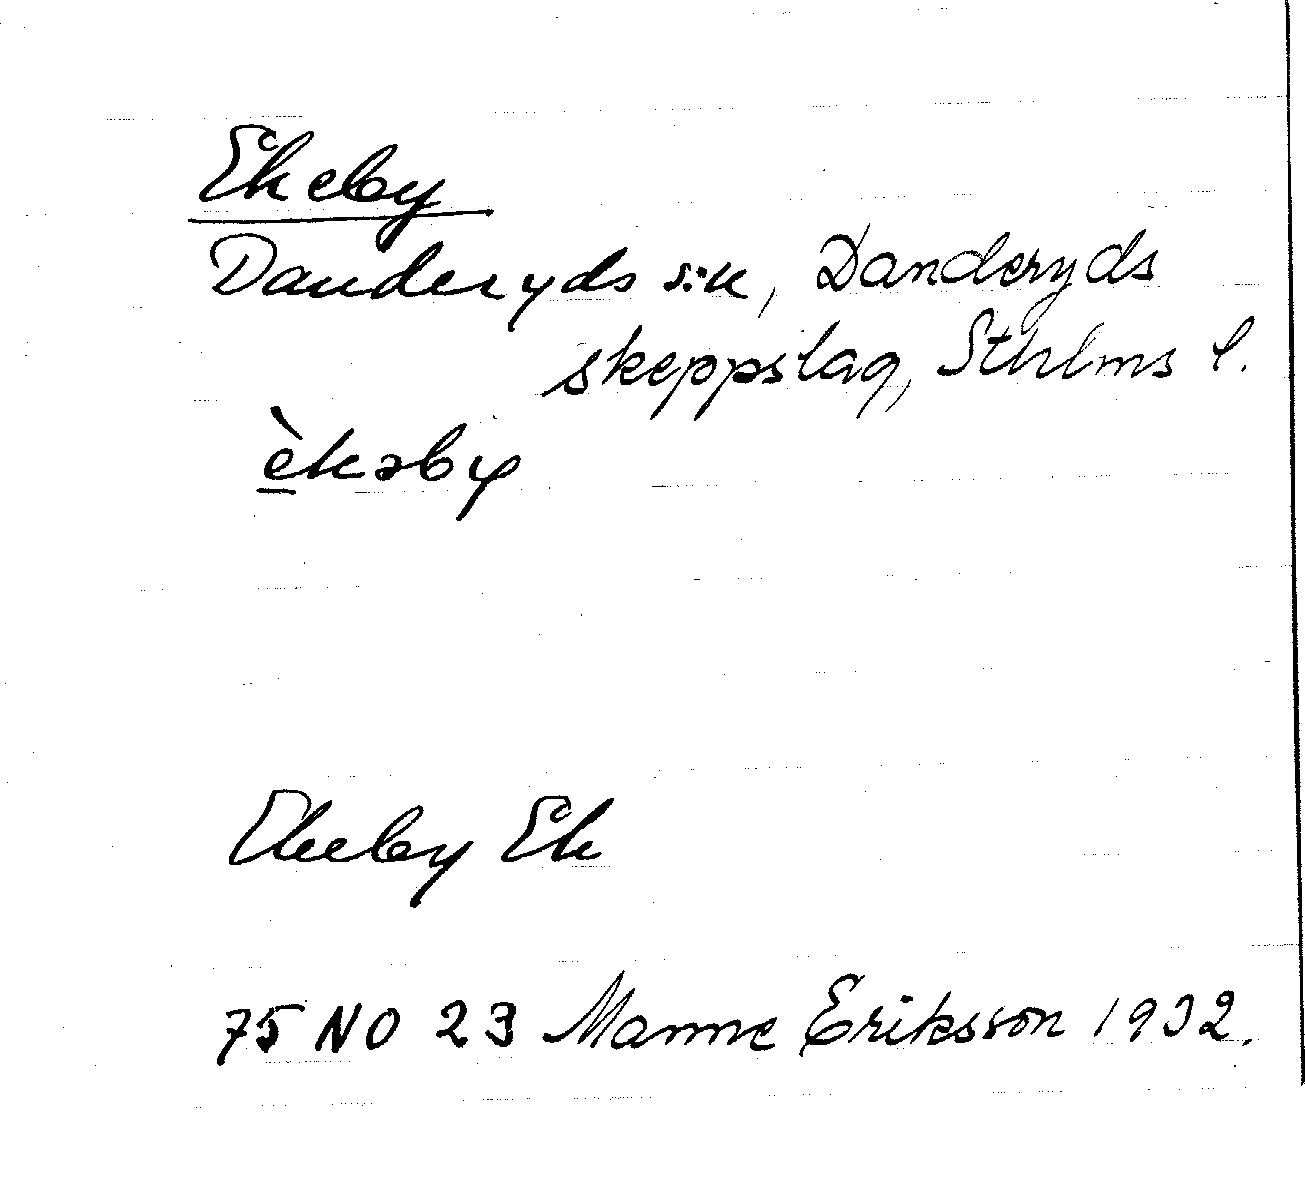 Ekeby
Danderyds s:n, Danderyds
skeppslag, Sthlms l.
èkəby
Ekeby Ek
75 NO 23 Manne Eriksson 1932.